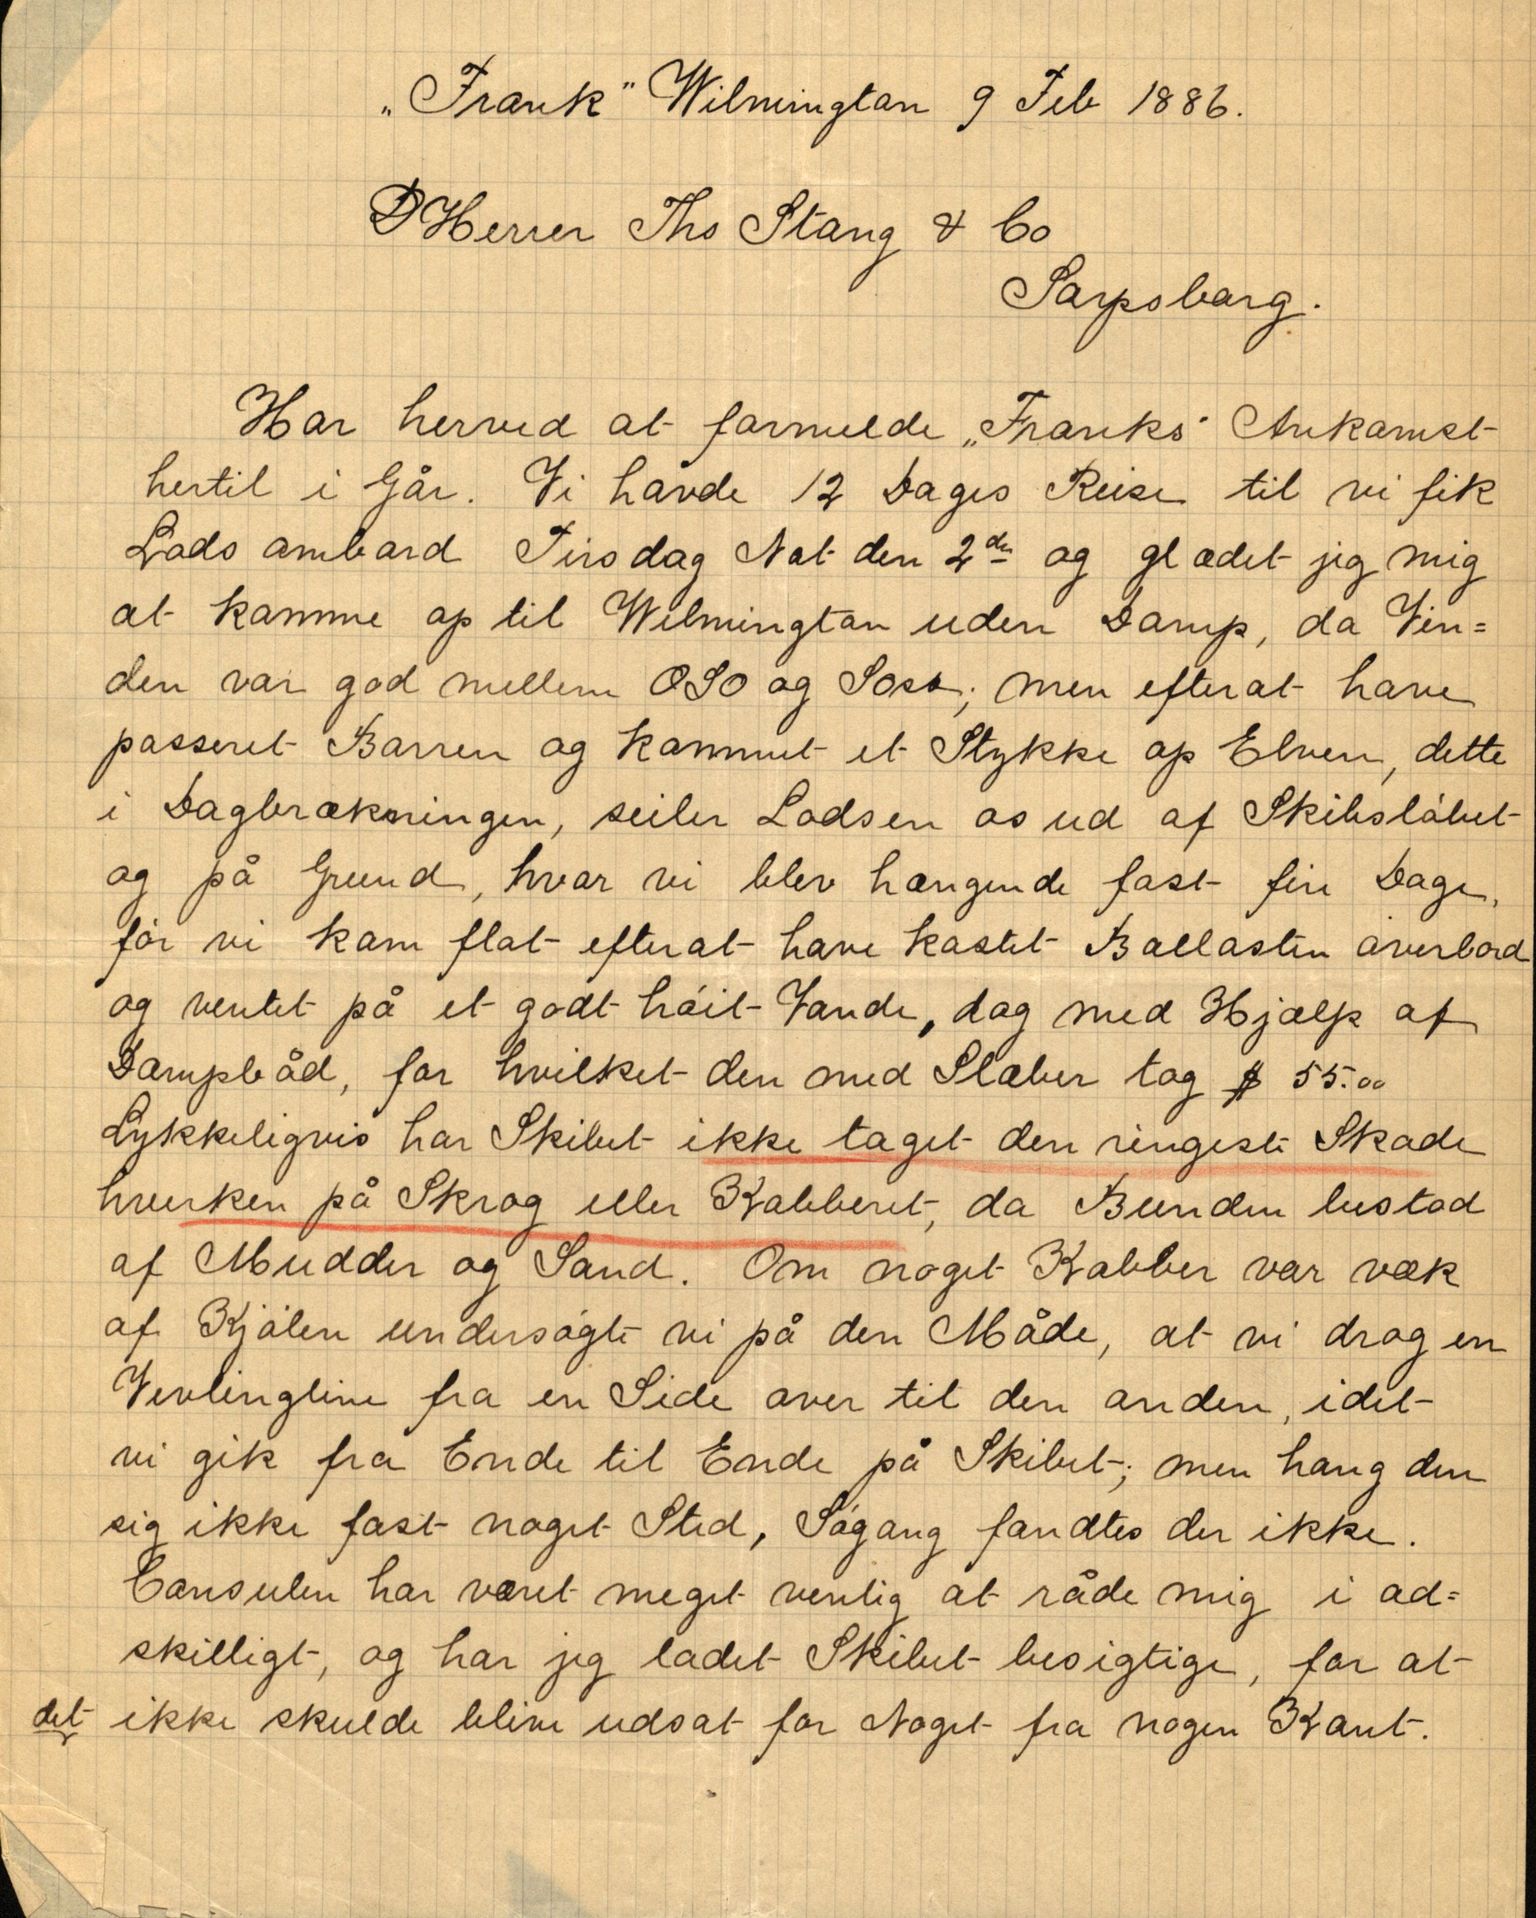 „Frank" Wilmington 9 Feb 1886.
D'Herrer Ths Stang & Co
Sarpsborg.
Har herved at formelde „Franks" Ankomst
hertil i Går. Vi havde 12 Dages Reise til vi fik
Lods ombord Tirsdag Nat den 2den og glædet jeg mig
at komme op til Wilmington uden Damp, da Vin=
den var god mellem OSO og Sost; men efterat have
passeret Barren og kommet et Stykke op Elven, dette
i Dagbrækningen, seiler Lodsen os ud af Skibsløbet
og på Grund, hvor vi blev hængende fast fire Dage,
før vi kom flot efterat have kastet Ballasten overbord
og ventet på et godt høit Vande, dog med Hjælp af
Dampbåd, for hvilket den med Slæber tog $ 55.00
Lykkeligvis har Skibet ikke taget den ringeste Skade
hverken på Skrog eller Kobberet, da Bunden bestod
af Mudder og Sand. Om noget Kobber var væk
af Kjølen undersøgte vi på den Måde, at vi drog en
Vevlingline fra en Side over til den anden, idet
vi gik fra Ende til Ende på Skibet; men hang den
sig ikke fast noget Sted, Søgang fandtes der ikke.
Consulen har været meget venlig at råde mig i ad=
skilligt, og har jeg ladet Skibet besigtige, for at
det ikke skulde blive udsat for Noget fra nogen Kant.